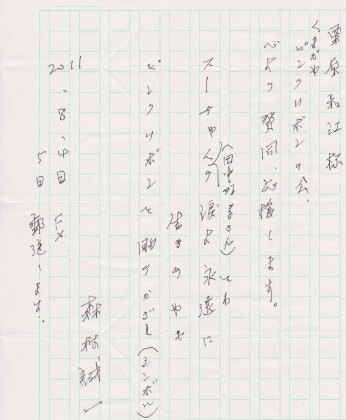 栗原和江様
くまがや
ピンクリボンの会、
心より賛同、応援します。
スーチャんの(田中好子さん)とわ
涙よ永遠に
生きのやせ
ピンクリボンを胸のかざし(シンボル)
森村誠一
2011.8.4日 FAX
5日 郵送します。